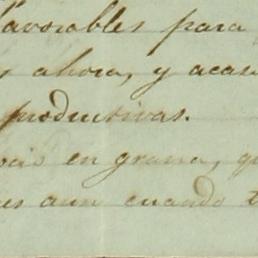 favorables para
ahora, y acas
productivas.
en grana, qu
aun cuando t